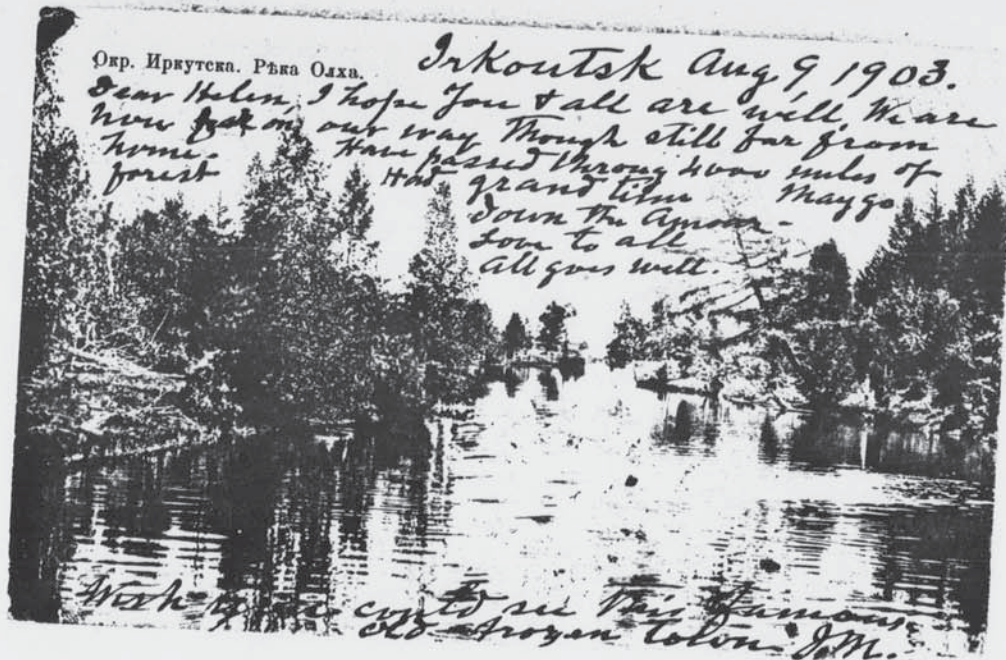 Окр. Иркутска. Рѣка Олха.
Irkoutsk Aug 9, 1903.
Dear Helen, I hope you & all are well, We are
now on our way though still far from
home. Have passed throug 4000 miles of
forest Had grand time May go
down the Amoor -
Love to all
All goes well.
Wish you could see this famous
old frozen town J.M.